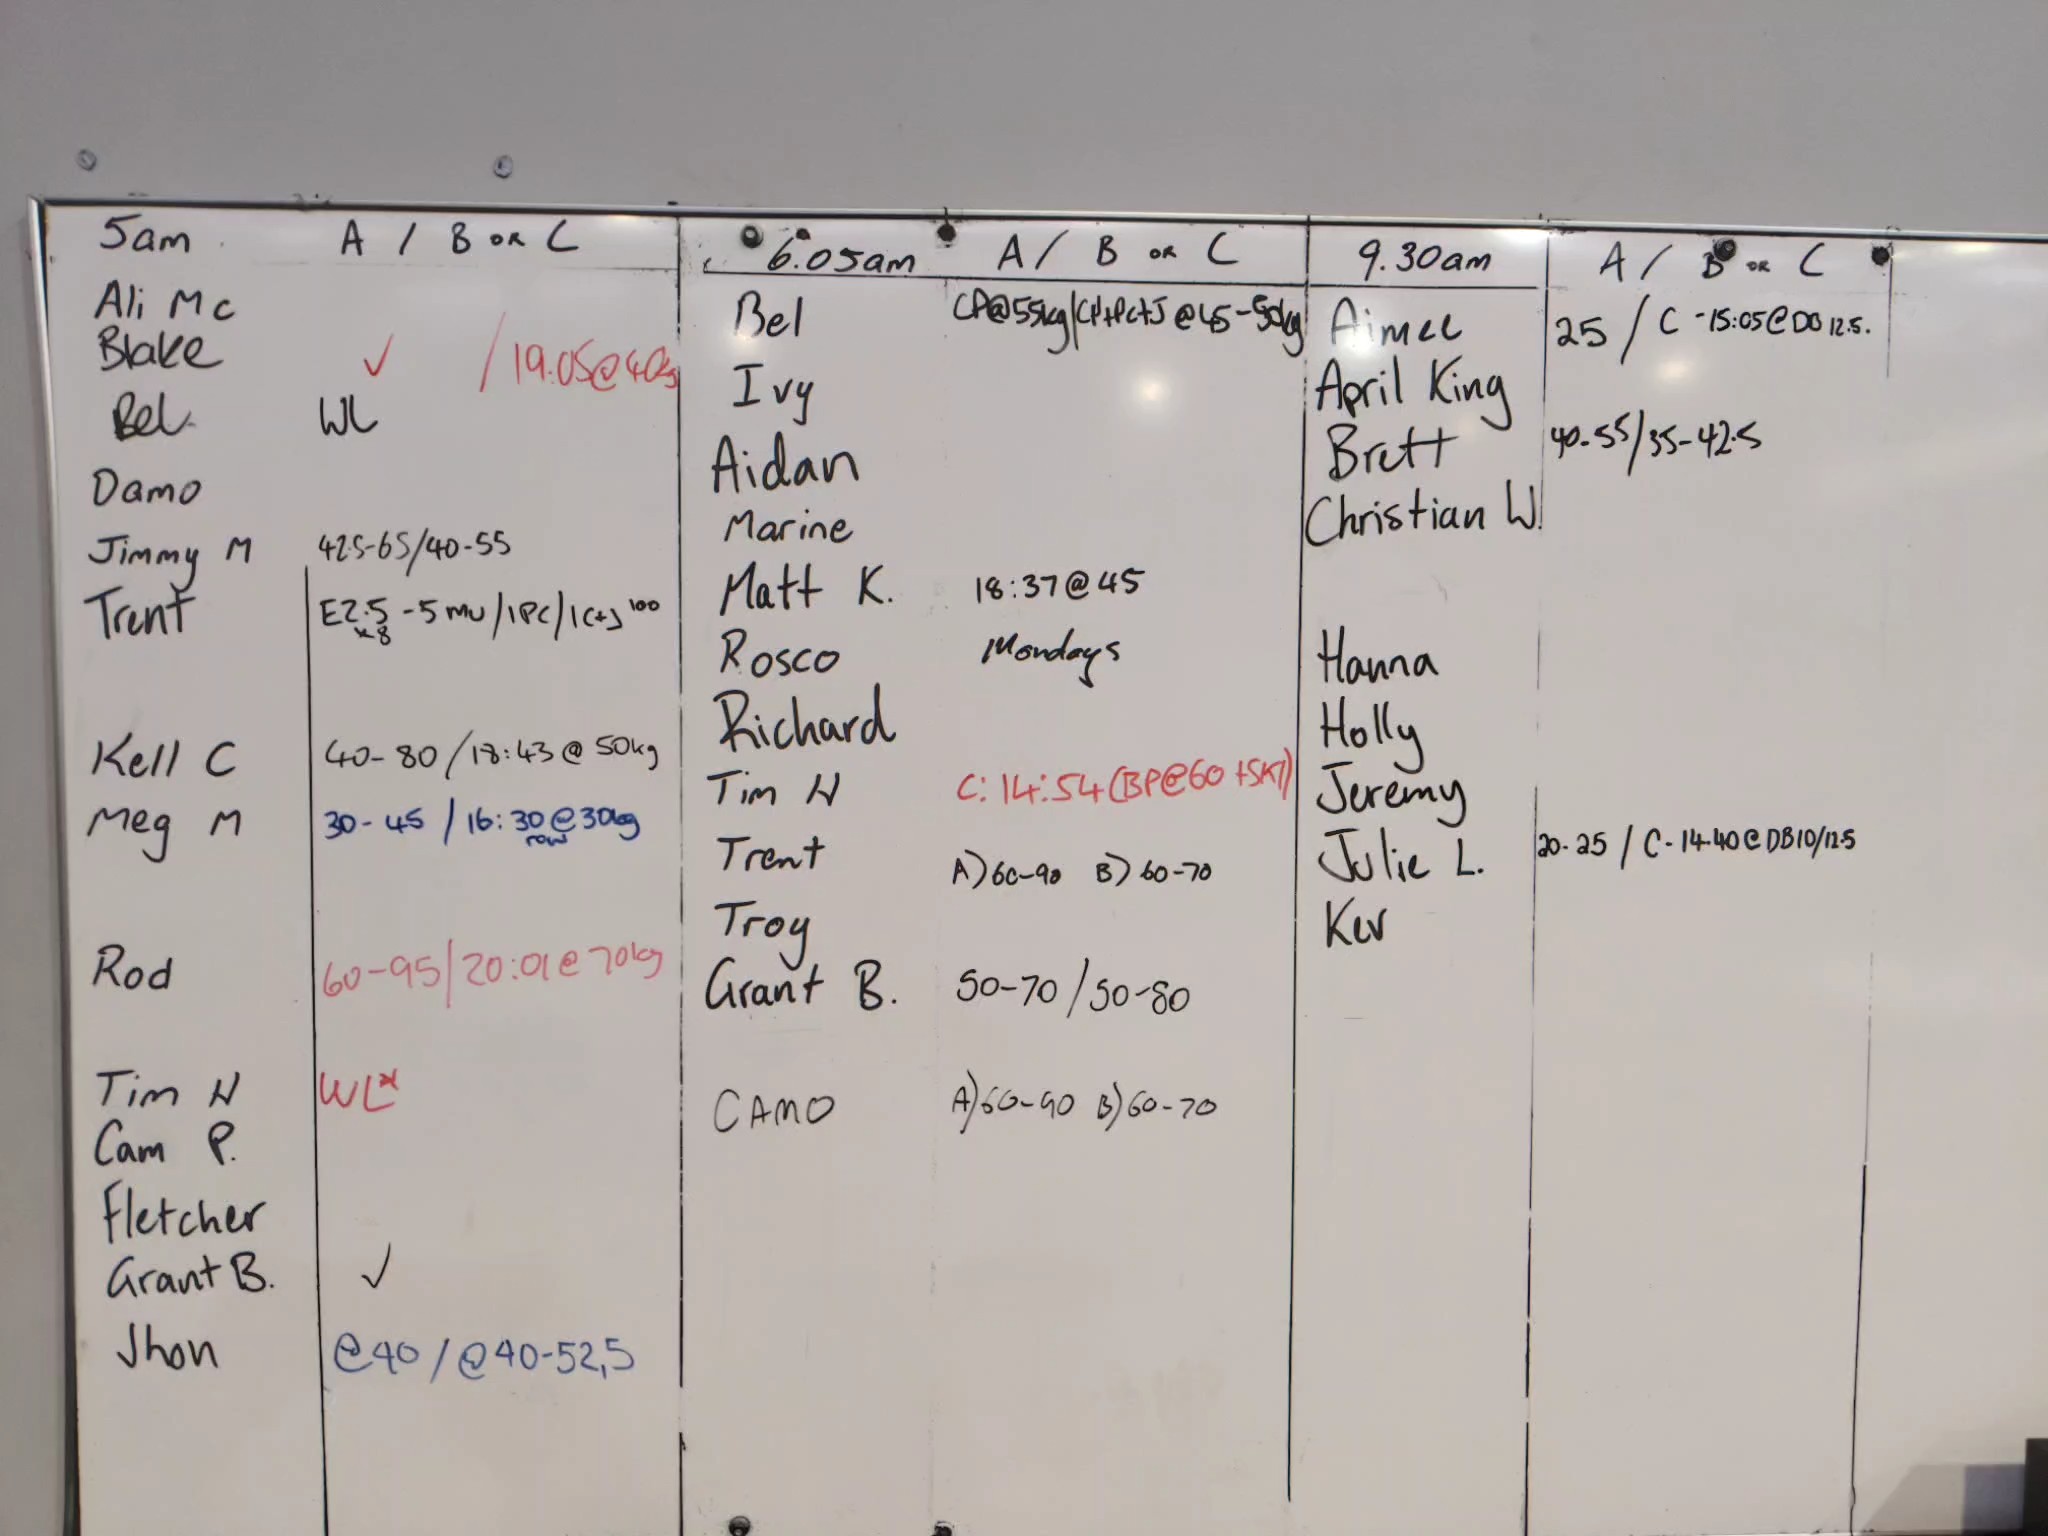 5am A / B OR C
Ali Mc
Blake ✓ / 19.05@40kg
Bel WL
Damo
Jimmy M 42.5-65/40-55
Trent E2.5 -5 mu/1PC/1C+J 100
x8
Kell C 40-80 /18:43 @ 50kg
Meg M 30-45 / 16:30@30kg
row
Rod 60-95/20:01@70kg
Tim H WL*
Cam P.
Fletcher
Grant B. ✓
Jhon @40/@40-52,5
6.05am A/ B OR C
Bel CP@55kg/CP+PC+J @45-50kg
Ivy
Aidan
Marine
Matt K. 18:37@45
Rosco Mondays
Richard
Tim H C: 14:54 (BP@60 +SKI)
Trent A)60-90 B) 60-70
Troy
Grant B. 50-70/50-80
CAMO A)60-90 B)60-70
9.30am A/ B OR C
Aimee 25 / C -15:05@DB 12.5.
April King
Brett 40-55/35-42.5
Christian W.
Hanna
Holly
Jeremy
Julie L. 20-25 / C-14.40@DB10/12.5
Kev